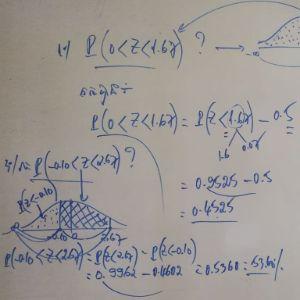 P(0<Z<1.67) ?
P(0<Z<1.67) = P(Z<1.67) - 0.5
1.6 0.07
= 0.9525 - 0.5
= 0.4525
P(-0.10<Z<2.67) ?
P(Z<-0.10)
-0.10 0 2.67
P(-0.10<Z<2.67) = P(Z<2.67) - P(Z<-0.10)
= 0.9962 - 0.4602 = 0.5360 = 53.60%